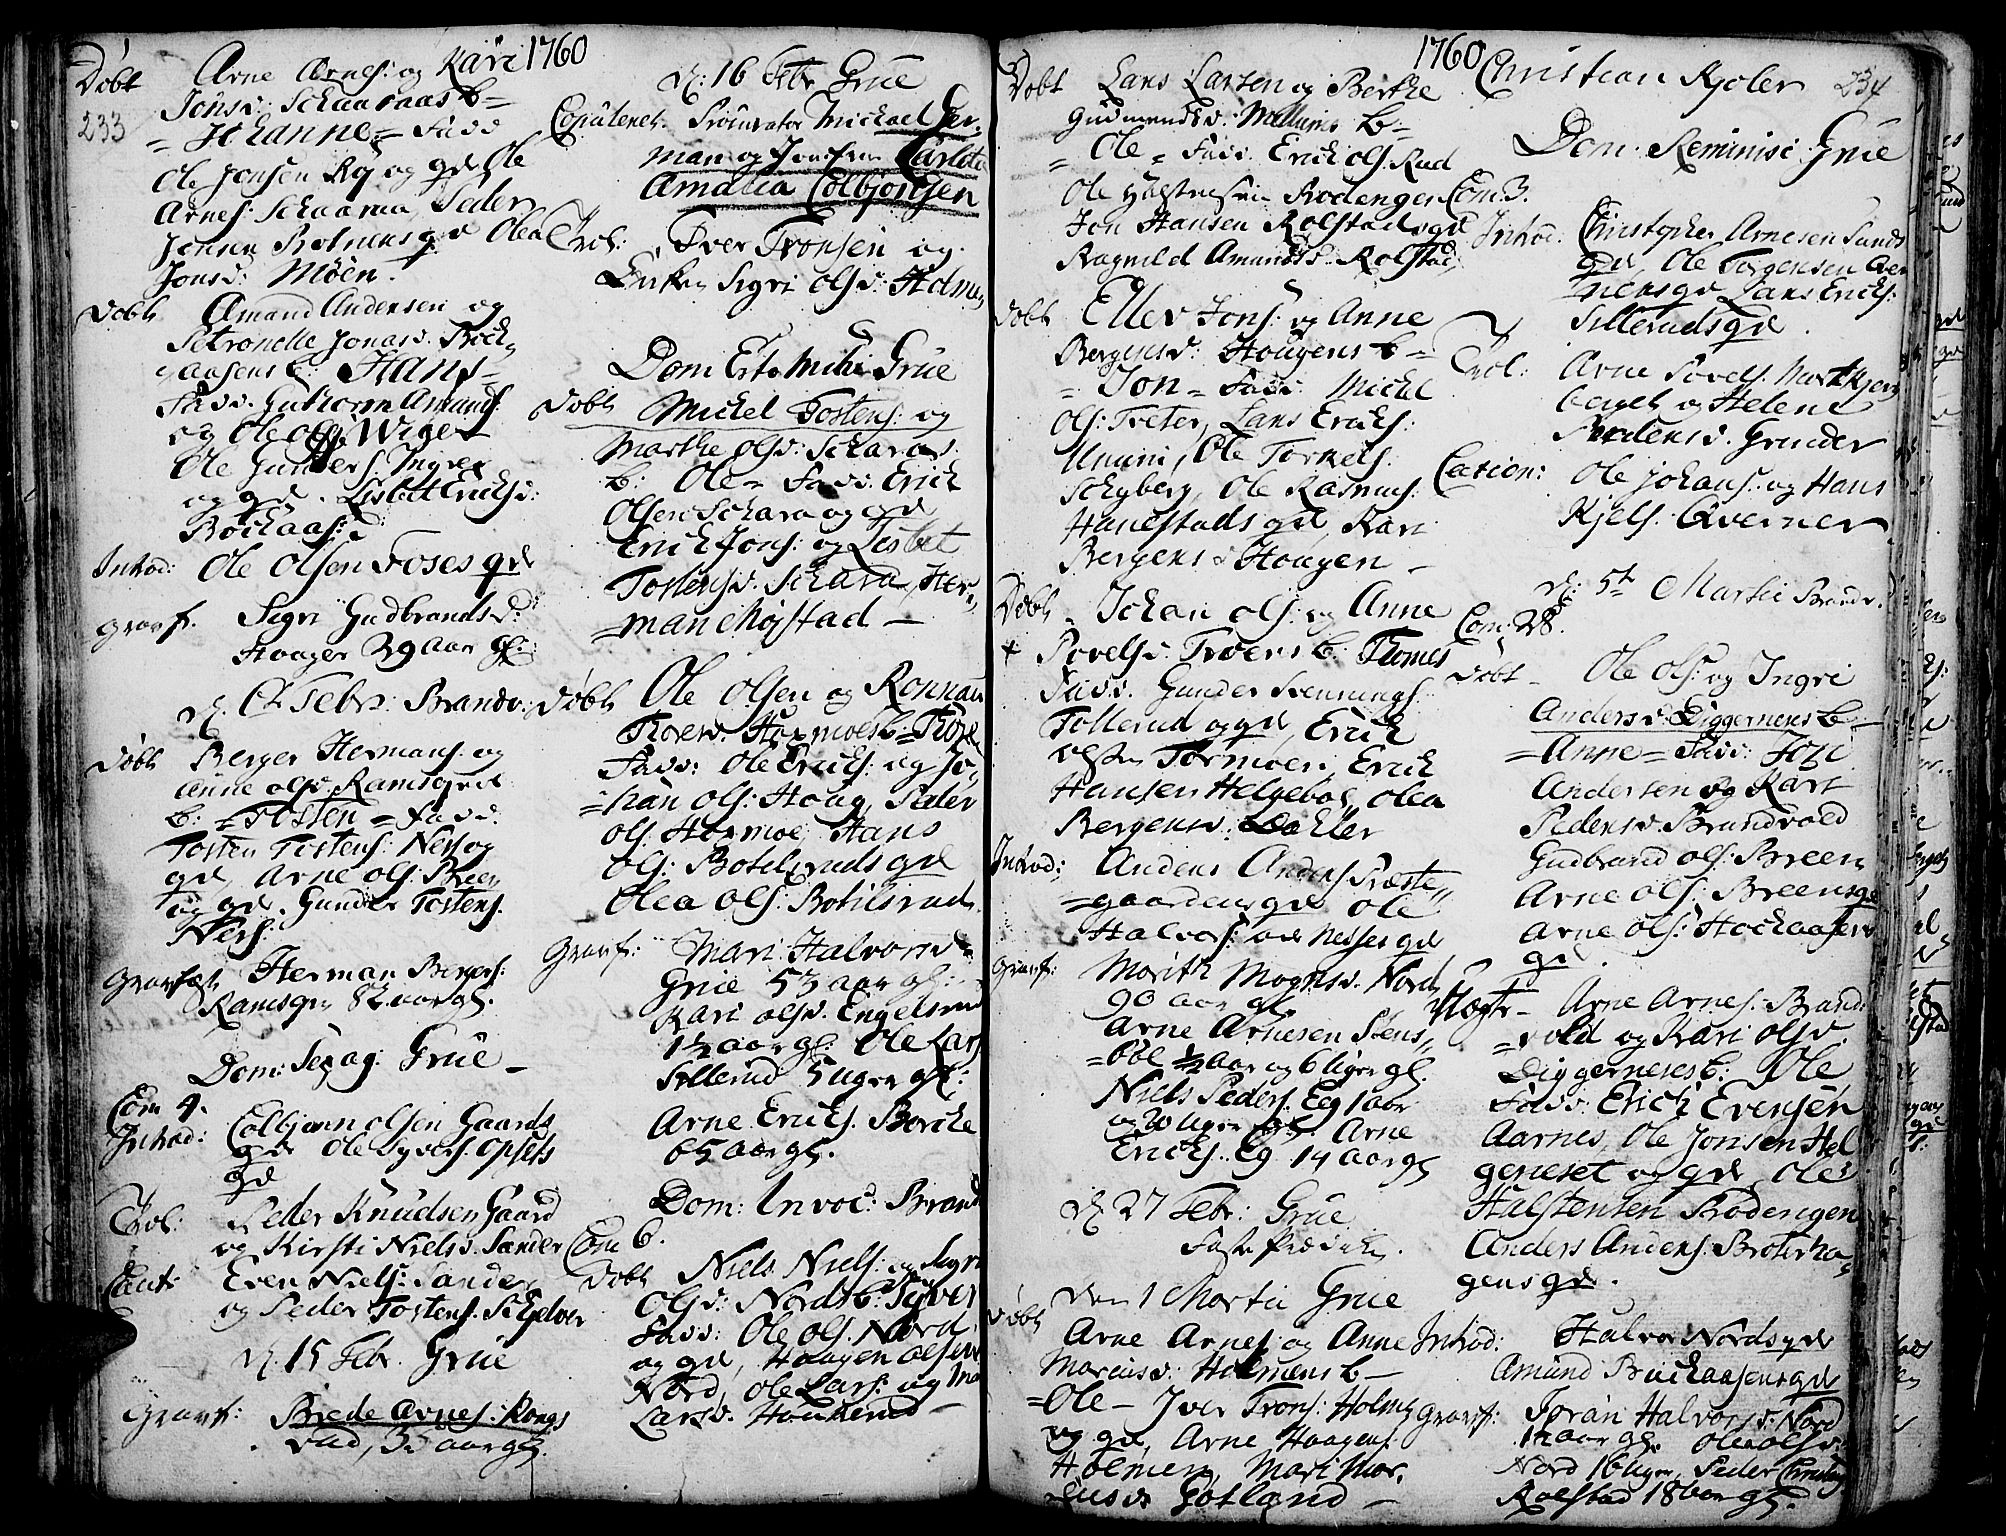 1760
233
Døbt Arne Arnes: og Kari
Jonsd: Schaaraas b-
= Johanne = Fadd
Ole Jonsen Røj og gd Ole
Arnes: Schaaraa, Peder
Jonsen gd Olea
Jonsd: Moen.
Døbt Amand Andersen og
Petronelle Jonasd. Böch,
aasens b: Hans -
Fadd. Guthorm Amunds:
og Ole ols. Wiger
Ole Gunders. Ingrer
og gd. Lisbet Ericksd:
Bochaas:
Introd: Ole Olsen Foses gd
Gravf. Sigri Gudbrandsd:
Haager 29 aar gl:
d. Febr: Brandv:
Døbt Berger Hermans: og
Anne olsd. Ramsgrd
b: = Tosten = Fadd:
Tosten Tostens: Ness og
gd, Arne ols: Breen
og gd. Gunder Tostens.
Ness:
Gravfæst Herman Bergers:
Ramsgrd 82 aar gl.
Dom: Sexag: Grue -
Com 4.
Introd: Colbjørn olsen Gaards
gd Ole Syvers. Opsets
gd
Trol: Peder Knudsen Gaard
og Kirsti Nielsd. Sander
Caut: Even Niels: Sander
og Peder Tostens. Schjelver
d. 15 Febr. Grue
Gravf: Brede Arnes: Kongs
vud, 35 aar gl.
d: 16 Febr Grue
Copulered. Procurator Michael Her-
man og Jomfrue
Amalia Colbjørnsen
Trol: Iver Tronsen og
Enken Sigri olsd: Holmen
Dom Esto Mihi Grue
Døbt Michel Tostens: og
Marthe olsd: Scharas
b: Ole - Fadd. Erick
Olsen Schara og gd
Erick Jons: og Lisbet
Tostensd. Schara, Her-
=man Mojstad -
Døbt Ole olsen og Ronnau
Thoresd. Hormoes b= Thore
Fadd: Ole Ericks: og Jo-
=han ols: Haug, Peder
ols: Hormoe Hans
ols: Botelsruds gd
Olea ols: Botilsrud.
Gravf: Mari Halvorsd:
Grue 53 aar gl:
Kari olsd. Engelsrud
aar gl: Ole Lars:
Sillerud 5 uger gl:
Arne Ericks. Borche
65 aar gl.
Dom: Invoc: Brand
Com 6.
Døbt Niels Niels: og Sigri
Olsd: Nords b: Syver
Fadd: Ole ols. Nord,
og gd, Haagen olsen
Nord, Ole Lars: og
Larsd.
1760
Christian Kjøler 234
Døbt Lars Larsen og Berthe
Gudmundsd. b=
= Ole = Fadd. Erick ols. Rud
Ole Halstensen Brodenger
Jon Hansen Rolstads gd
Ragnild Amundsd. Rolstad
Døbt Ellev Jons: og Anne
Bergersd: Haugens b=
= Jon = Fadd. Michel
ols: Treter, Lars Ericks:
Ununi, Ole Torkels.
Schyberg, Ole Rasmus:
Hanestads gd, Kari
Bergersd Haugen -
Døbt Johan ols: og Anne
Povelsd. b: Thomes
Fadd. Gunder Svennings:
Tollerud og gd, Erick
olsen Tormoen, Erick
Hansen Helgeboe, olea
Bergersd:
Introd: Anders Anders: Præste-
=gaardens gd Ole
Halvors: gd
Gravf: Marith Mognsd. Nord
90 aar gl.
Arne Arnesen Steens-
=bøl ½ aar og 6 Uger gl.
Niels Peders. Eeg 1 aar
og 20 Uger gl. Arne
Ericks. Eg 14 aar gl
d. 27 Febr: Grue
Faste Prædiken.
Den 1 Martii Grue
Døbt Arne Arnes: og Anne
Marcusd: Holmens b-
=Ole- Iver Trons: Holmen
og gd, Arne Haagens.
Holmen, Mari Mar-
cusd Gotland -
Dom. Reminisc: Grue
Com: 3.
Introd. Christopher Arnesen Sands
gd, Ole Torgersen Qver
=nens gd Lars Ericks:
Silleruds gd.
Trol: Arne Povels. Mortkjern
berget og Helene
Pedersd. Grander
Cation: Ole Johans: og Hans
Kjels: Qverner
d: 5te Martii Brandv.
Com: 28.
Døbt - Ole ols: og Ingri
Andersd. Diggernes b-
= Anne = Fadd:
Andersen og Kari
Pedersd. Brandvold
Gudbrand ols: Breen
Arne ols: Breens gd
Arne ols: Hochaasen
gd.
Uægte - Arne Arnes: Brand-
=vold og Kari olsd.
Diggerneses b: Ole
Fadd: Erick Evensen
Aarnes, Ole Jonsen Hel
geneset og gd, Ole
Halstensen Brodengen
Anders Anders: Broterha-
gens gd.
Introd: Halvor Nords gd
Amund Buchaasens gd
Gravf: Joran Halvorsd: Nord
aar gl. Olea olsd:
Nord 16 Uger, Peder
Rolstad 18 aar gl.